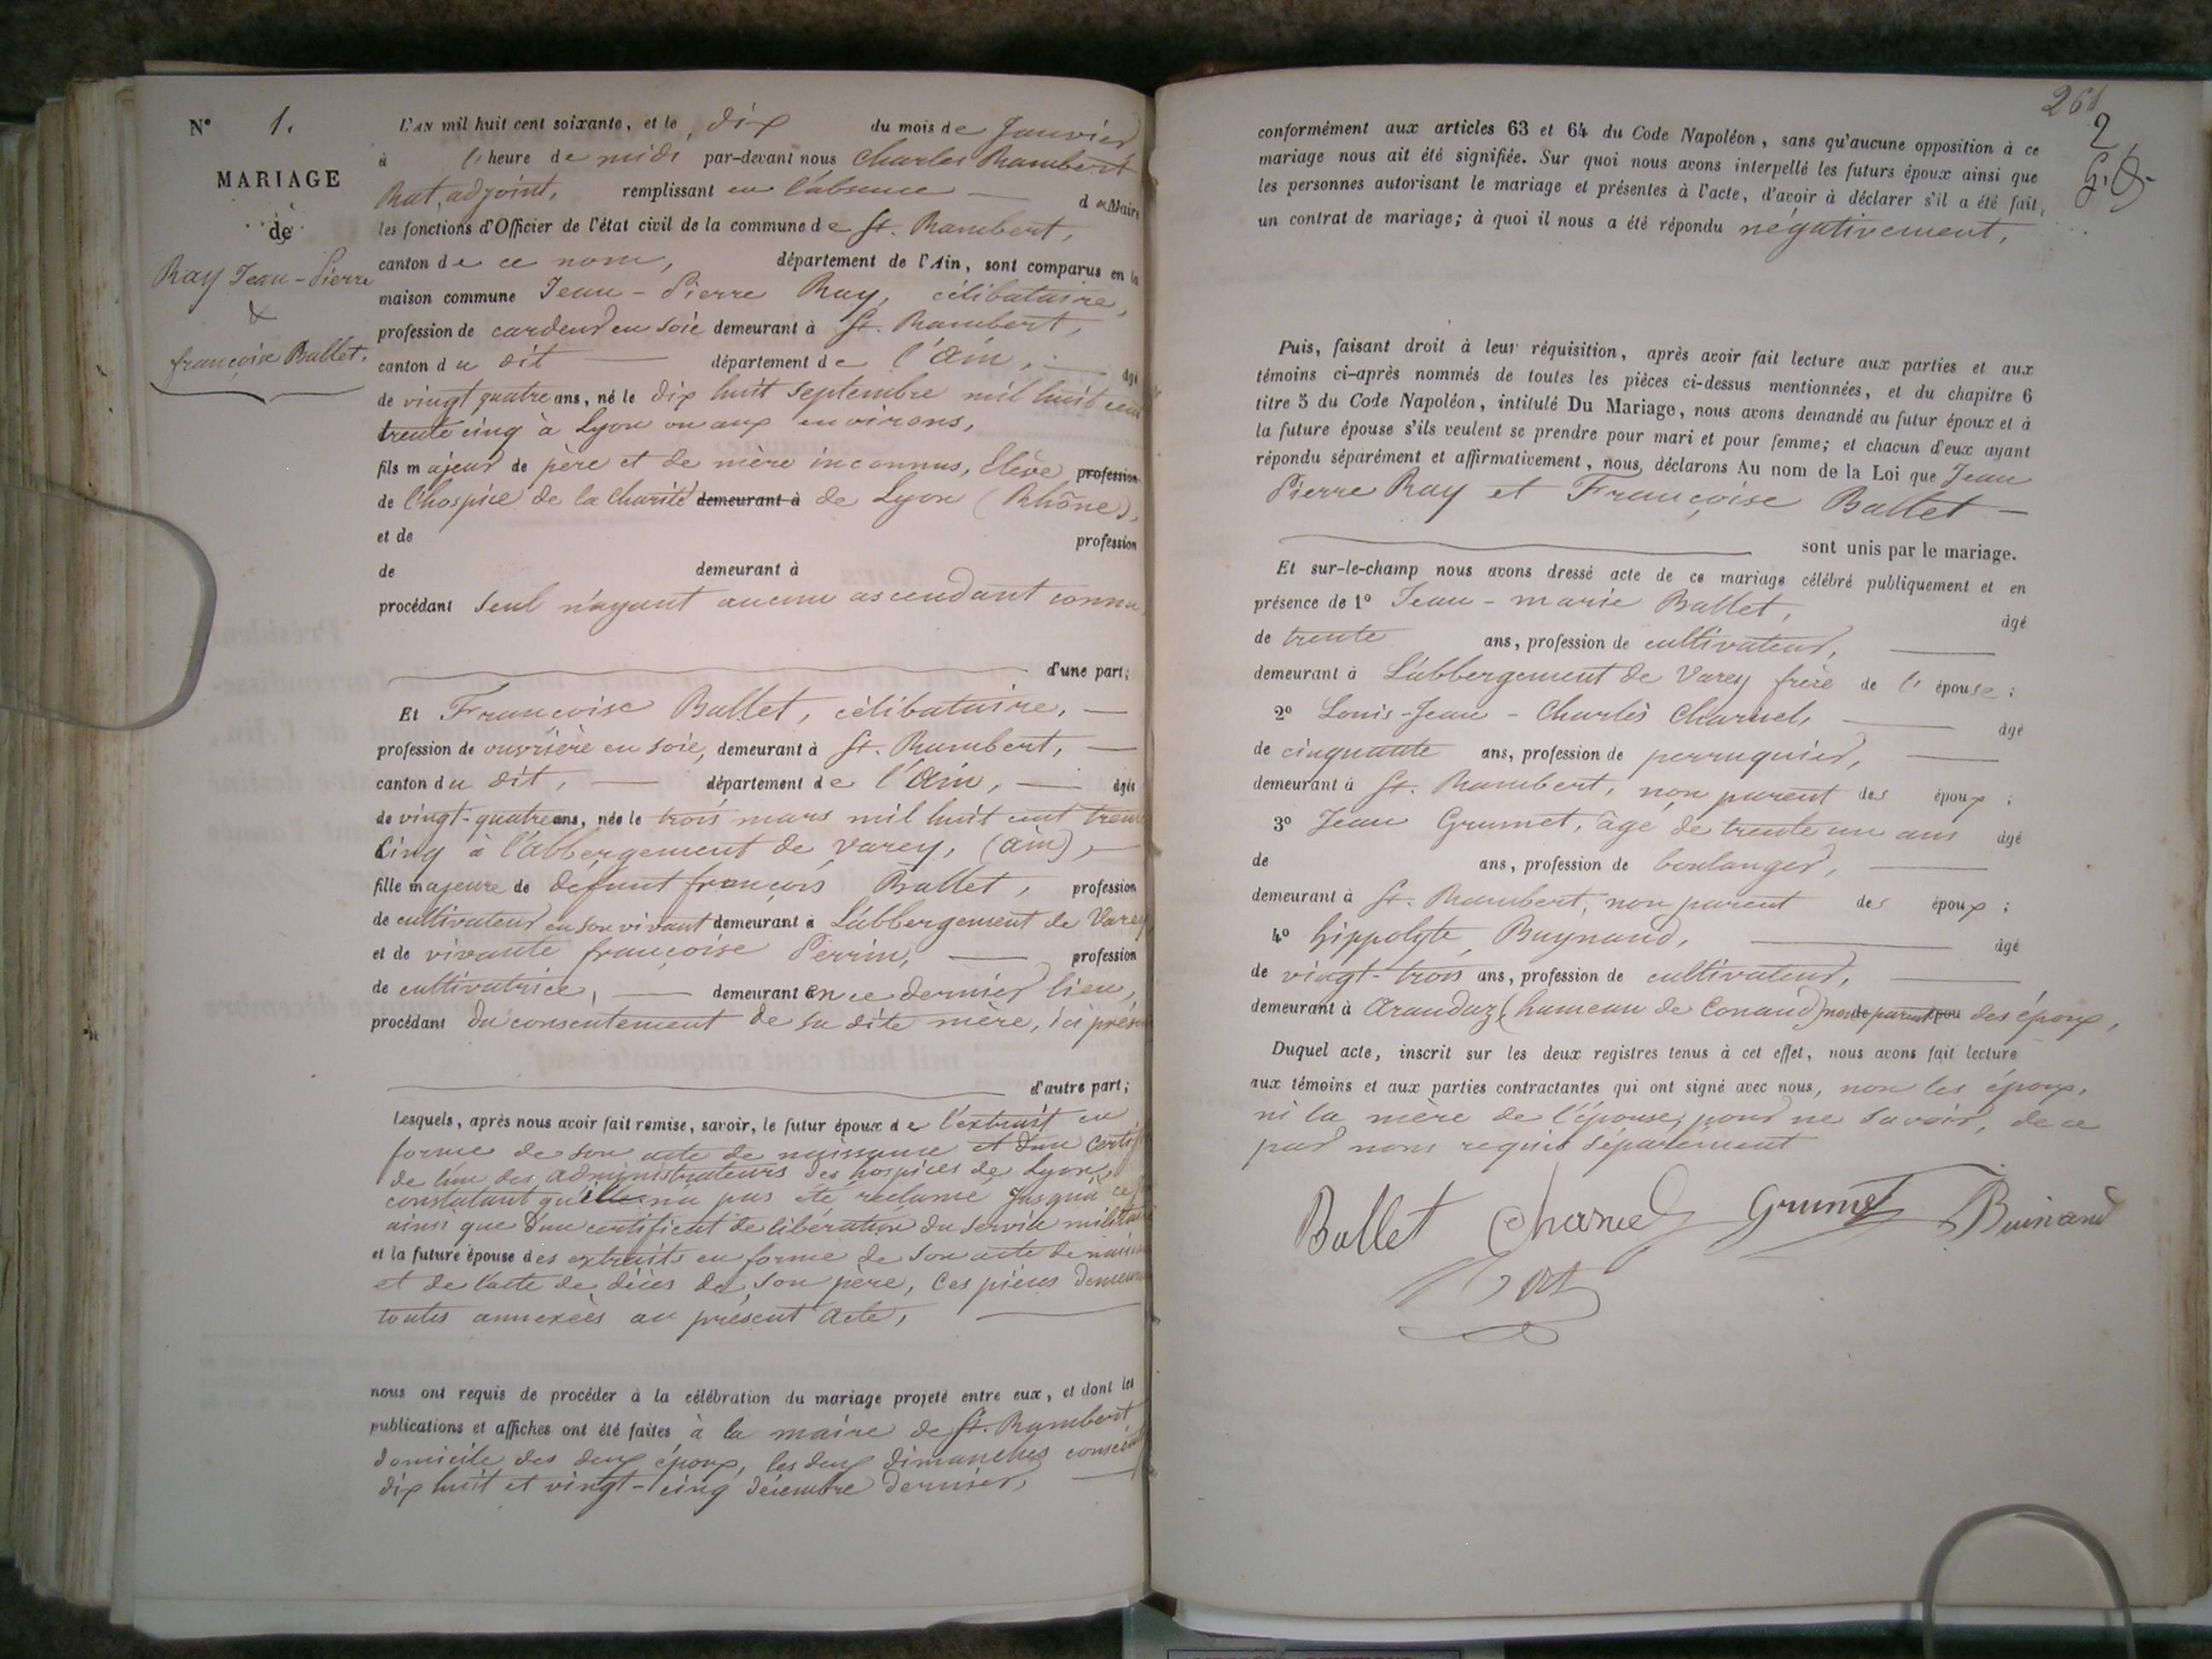 N° 1.
MARIAGE
de
Ray Jean-Pierre
&
françoise Ballet.
L'AN mil huit cent soixante, et le dix du mois de Janvier
à l'heure de midi par-devant nous Charles Rambert
Rat, adjoint, remplissant en l'absence du Maire
les fonctions d'Officier de l'état civil de la commune de St. Rambert,
canton de ce nom, département de l'Ain, sont comparus en la
maison commune Jean-Pierre Ray, célibataire,
profession de cardeur en soie demeurant à St. Rambert,
canton du dit département de l'Ain, âgé
de vingt quatre ans, né le dix huit septembre mil huit cent
trente cinq à Lyon ou aux environs,
fils majeur de père et de mère inconnus, Elève profession
de l'hospice de la Charité demeurant à de Lyon (Rhône),
et de profession
de demeurant à
procédant seul n'ayant aucun ascendant connu
d'une part;
Et Françoise Ballet, célibataire,
profession de ouvrière en soie, demeurant à St. Rambert,
canton du dit, département de l'Ain, âgée
de vingt-quatre ans, née le trois mars mil huit cent trente
cinq à l'abbergement de Varey, (ain),
fille majeure de défunt françois Ballet, profession
de cultivateur en son vivant demeurant à L'abbergement de Varey
et de vivante françoise Perrin, profession
de cultivatrice, demeurant en ce dernier lieu,
procédant du consentement de sa dite mère, ici présen
d'autre part;
Lesquels, après nous avoir fait remise, savoir, le futur époux de l'extrait en
forme de son acte de naissance et d'un certif
de l'un des administrateurs des hospices de Lyon,
constatant qu'il n'a pas été réclamé jusqu'à ce
ainsi que d'un certificat de libération du service militaire
et la future épouse des extraits en forme de son acte de naiss
et de l'acte de décès de son père, Ces pièces demeur
toutes annexées au présent acte,
nous ont requis de procéder à la célébration du mariage projeté entre eux, et dont les
publications et affiches ont été faites à la mairie de St. Rambert
domicile des deux époux, les deux dimanches conséc
dix huit et vingt-cinq décembre dernier,
261
2
conformément aux articles 63 et 64 du Code Napoléon, sans qu'aucune opposition à ce
mariage nous ait été signifiée. Sur quoi nous avons interpellé les futurs époux ainsi que
les personnes autorisant le mariage et présentes à l'acte, d'avoir à déclarer s'il a été fait,
un contrat de mariage; à quoi il nous a été répondu négativement,
Puis, faisant droit à leur réquisition, après avoir fait lecture aux parties et aux
témoins ci-après nommés de toutes les pièces ci-dessus mentionnées, et du chapitre 6
titre 5 du Code Napoléon, intitulé Du Mariage, nous avons demandé au futur époux et à
la future épouse s'ils veulent se prendre pour mari et pour femme; et chacun d'eux ayant
répondu séparément et affirmativement, nous déclarons Au nom de la Loi que Jean
Pierre Ray et Françoise Ballet
sont unis par le mariage.
Et sur-le-champ nous avons dressé acte de ce mariage célébré publiquement et en
présence de 1° Jean-marie Ballet, âgé
de trente ans, profession de cultivateur,
demeurant à L'abbergement de Varey frère de l'épouse;
2° Louis-Jean-Charles Charvet, âgé
de cinquante ans, profession de perruquier,
demeurant à St. Rambert, non parent des époux;
3° Jean Grumet, âgé de trente un ans âgé
de ans, profession de boulanger,
demeurant à St. Rambert, non parent des époux;
4° hippolyte Buynand, âgé
de vingt-trois ans, profession de cultivateur,
demeurant à Arandaz, (hameau de Conand) non parent des époux,
Duquel acte, inscrit sur les deux registres tenus à cet effet, nous avons fait lecture
aux témoins et aux parties contractantes qui ont signé avec nous, non les époux,
ni la mère de l'épouse, pour ne savoir, de ce
par nous requis séparément
Ballet Charvet Grumet Buinand
Rat